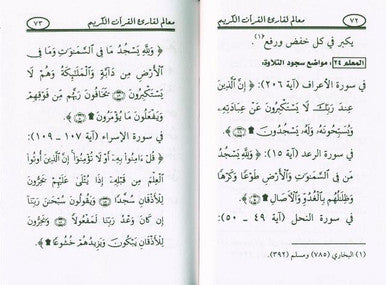 ٧٢ معالم لقارئ القرآن الكريم
يكبر في كل خفض ورفع(١).
المعلم ٢٤ مواضع سجود التلاوة:
في سورة الأعراف (آية ٢٠٦): ﴿ إِنَّ ٱلَّذِينَ
عِندَ رَبِّكَ لَا يَسْتَكْبِرُونَ عَنْ عِبَادَتِهِۦ
وَيُسَبِّحُونَهُۥ وَلَهُۥ يَسْجُدُونَ ﴾
في سورة الرعد (آية ١٥): ﴿ وَلِلَّهِ يَسْجُدُ
مَن فِي ٱلسَّمَٰوَٰتِ وَٱلْأَرْضِ طَوْعًا وَكَرْهًا
وَظِلَٰلُهُم بِٱلْغُدُوِّ وَٱلْءَاصَالِ ﴾
في سورة النحل (آية ٤٩ - ٥٠):
(١) البخاري (٧٨٥) ومسلم (٣٩٢).
معالم لقارئ القرآن الكريم ٧٣
﴿ وَلِلَّهِ يَسْجُدُ مَا فِي ٱلسَّمَٰوَٰتِ وَمَا فِي
ٱلْأَرْضِ مِن دَآبَّةٍ وَٱلْمَلَٰٓئِكَةُ وَهُمْ لَا
يَسْتَكْبِرُونَ ۝ يَخَافُونَ رَبَّهُم مِّن فَوْقِهِمْ
وَيَفْعَلُونَ مَا يُؤْمَرُونَ ﴾
في سورة الإسراء (آية ١٠٧ - ١٠٩):
﴿ قُلْ ءَامِنُوا۟ بِهِۦٓ أَوْ لَا تُؤْمِنُوٓا۟ إِنَّ ٱلَّذِينَ أُوتُوا۟
ٱلْعِلْمَ مِن قَبْلِهِۦٓ إِذَا يُتْلَىٰ عَلَيْهِمْ يَخِرُّونَ
لِلْأَذْقَانِ سُجَّدًا ۝ وَيَقُولُونَ سُبْحَٰنَ رَبِّنَآ
إِن كَانَ وَعْدُ رَبِّنَا لَمَفْعُولًا ۝ وَيَخِرُّونَ
لِلْأَذْقَانِ يَبْكُونَ وَيَزِيدُهُمْ خُشُوعًا ﴾